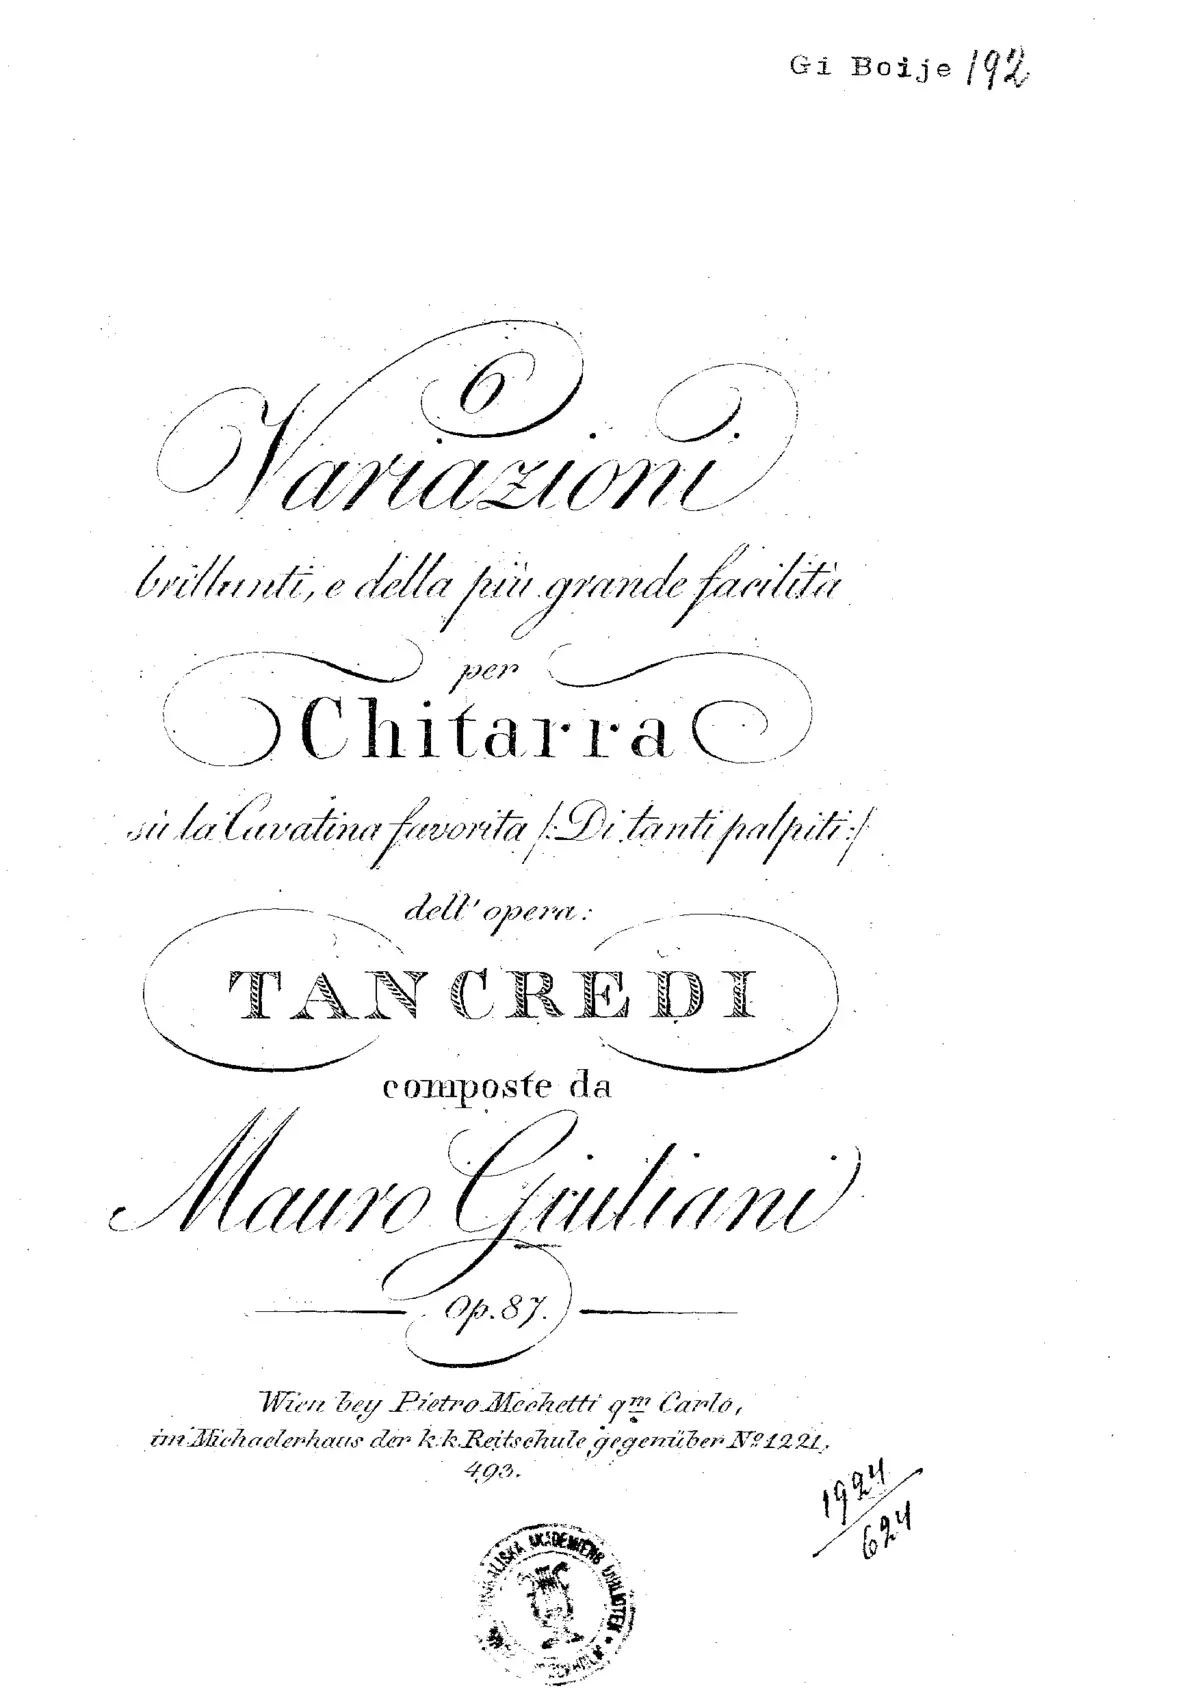 Gi Boije 192
6
Variazioni
brillanti, e della più grande facilità
per
Chitarra
sù la Cavatina favorita /: Di tanti palpiti :/
dell' opera:
TANCREDI
composte da
Mauro Giuliani
Op. 87.
Wien bey Pietro Mechetti qm Carlo,
im Michaelerhaus der k.k. Reitschule gegenüber No 1221.
493.
1924/624
AKADEMIENS BIBLIOTEK